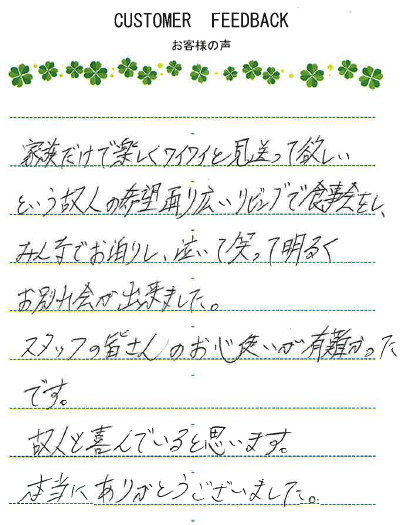 CUSTOMER FEEDBACK
お客様の声
家族だけで楽しくワイワイと見送って欲しい
という故人の希望通り広いリビングで食事会をし、
みんなでお泊りし、泣いて笑って明るく
お別れ会が出来ました。
スタッフの皆さんのお心使いが有難かった
です。
故人も喜んでいると思います。
本当にありがとうございました。